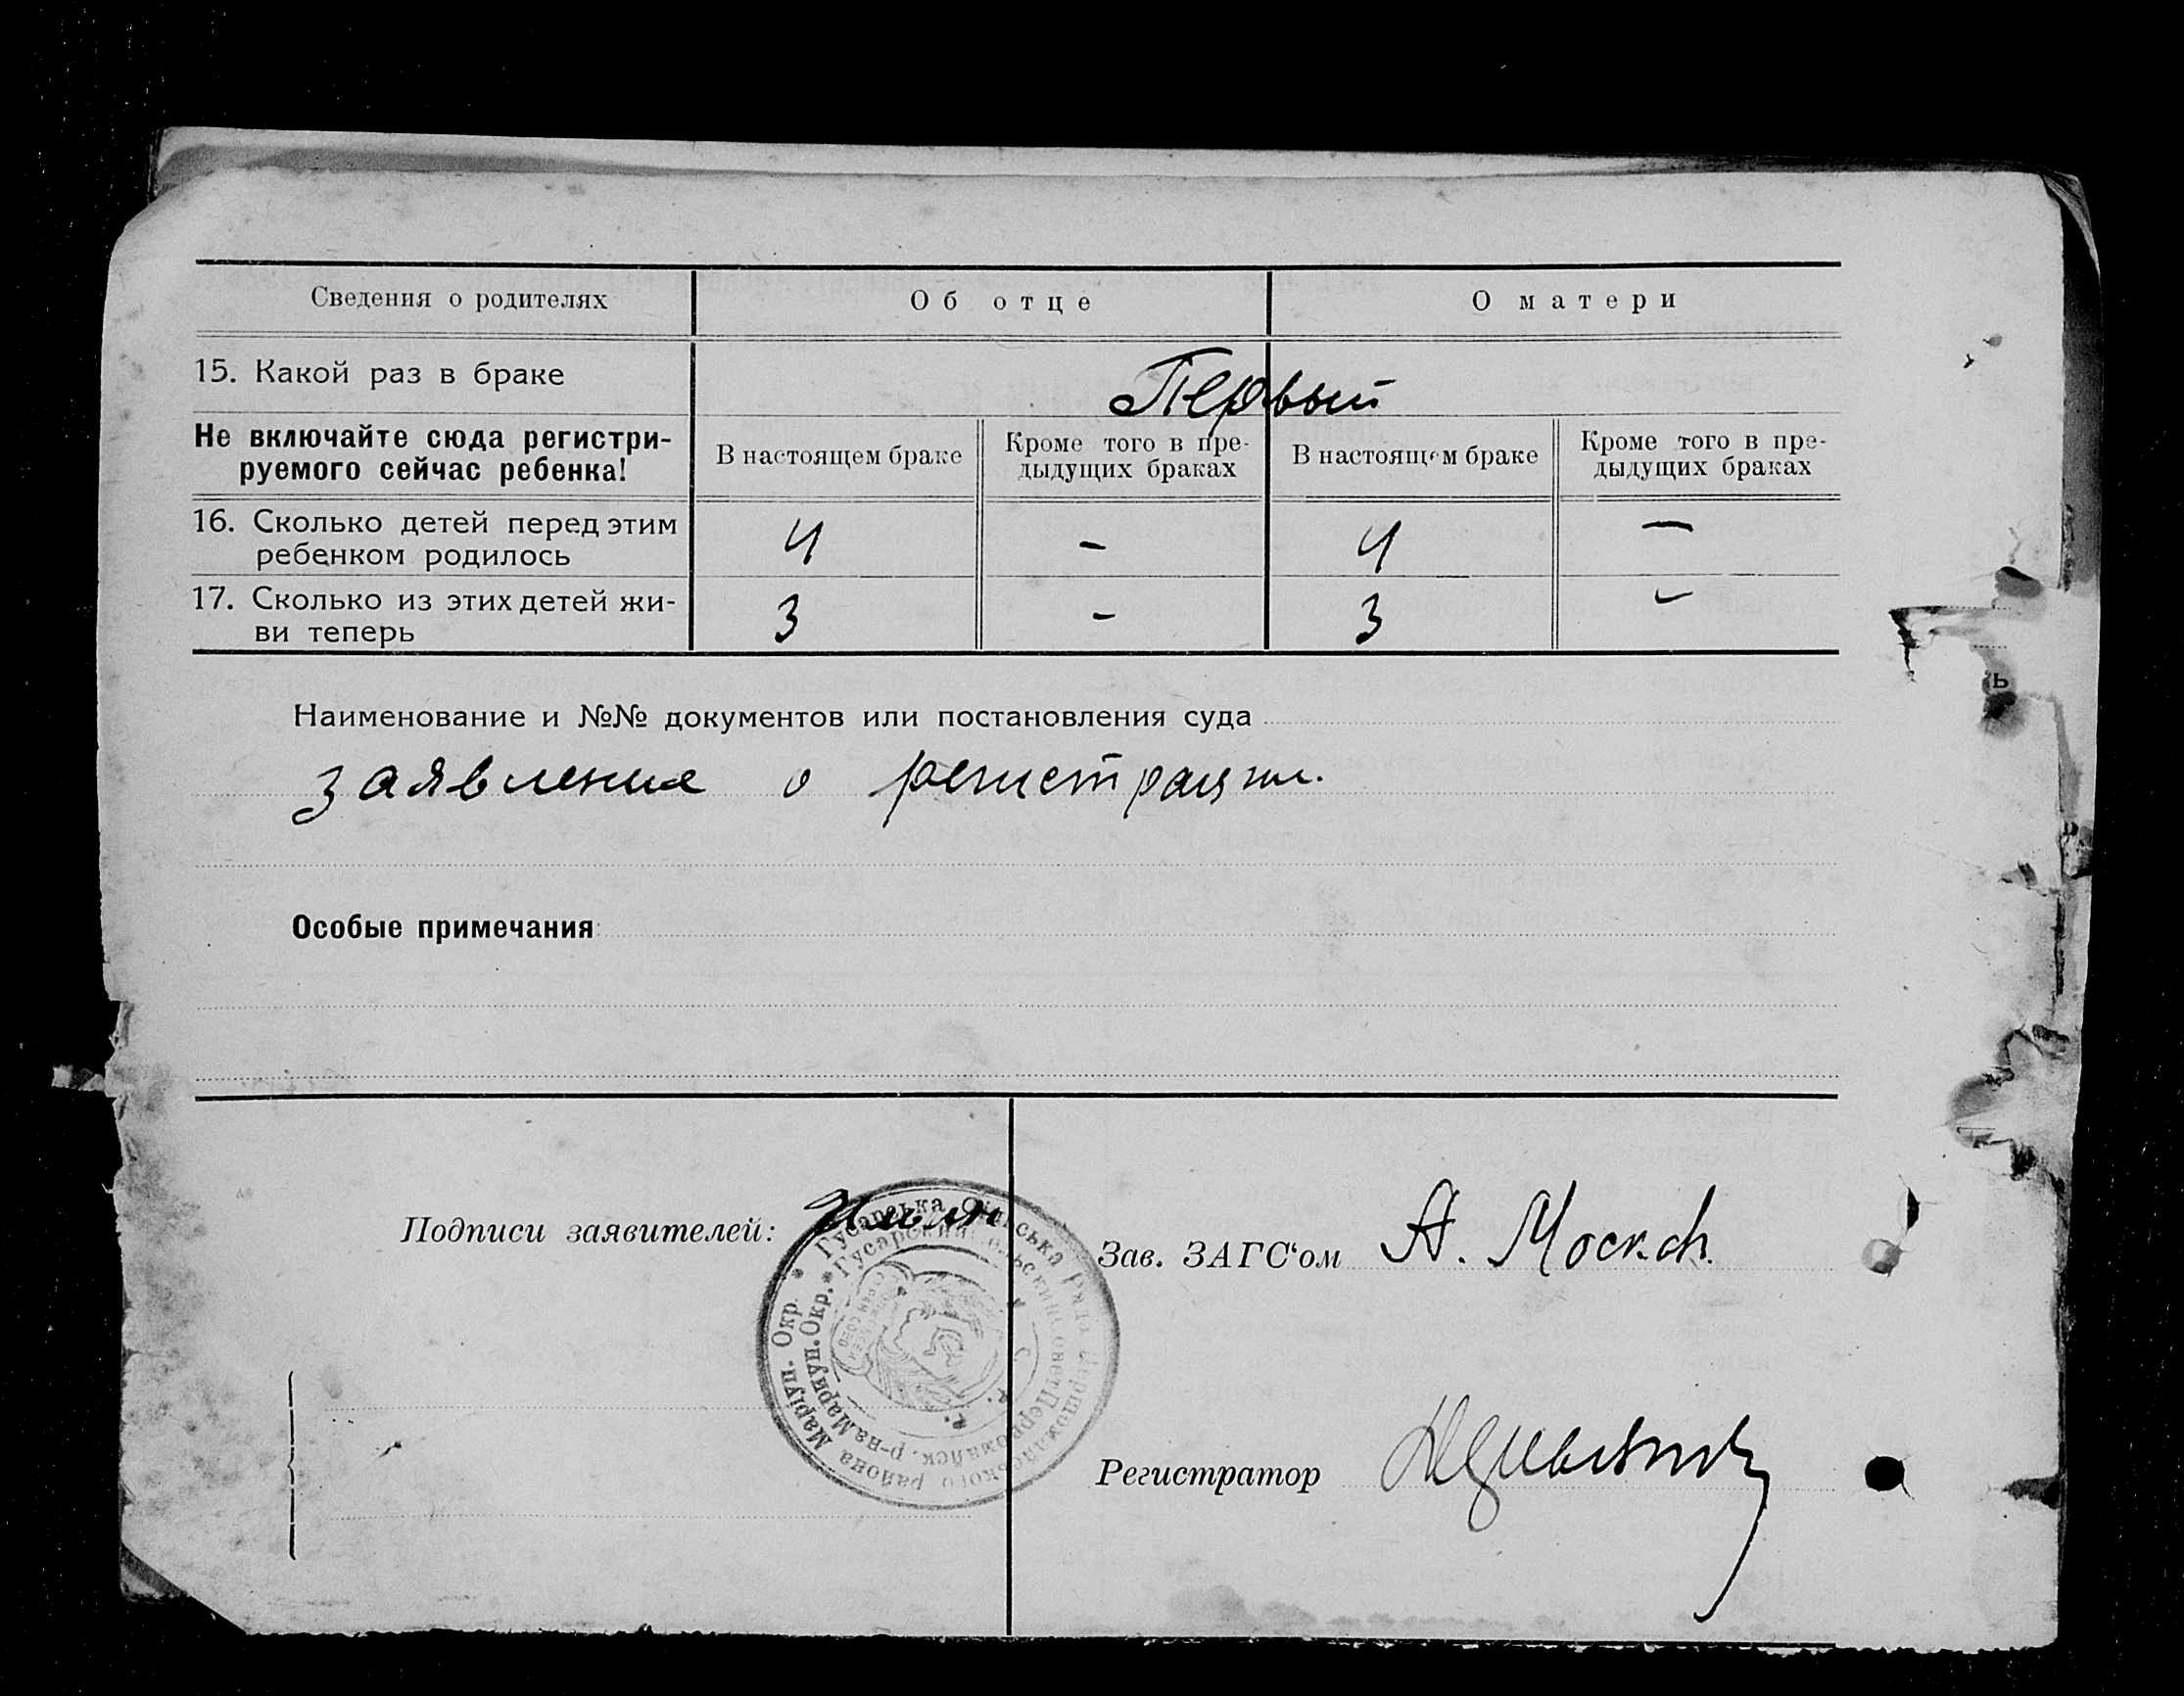 Сведения о родителях
Об отце
О матери
15. Какой раз в браке
Первый
Не включайте сюда регистри-
руемого сейчас ребенка!
В настоящем браке
Кроме того в пре-
дыдущих браках
В настоящем браке
Кроме того в пре-
дыдущих браках
16. Сколько детей перед этим
ребенком родилось
4
-
4
-
17. Сколько из этих детей жи-
ви теперь
3
-
3
-
Наименование и №№ документов или постановления суда
заявление о регистрации.
Особые примечания:
Подписи заявителей:
Гусарська Сільська Рада Першомайського района Маріуп. Окр.
Гусарский Сельский Совет Первомайск. р-на Мариуп. Окр.
Зав. ЗАГС'ом А.
Регистратор